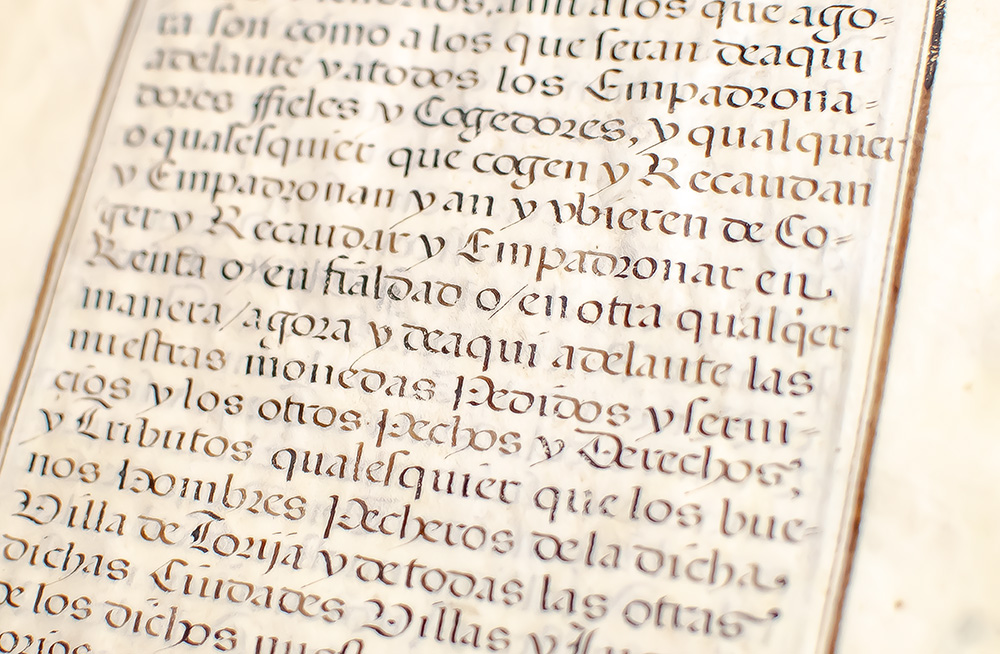 , ami alos que ago=
ra son como alos que seran deaqui
adelante yatodos los Empadrona=
dores ffieles y Cogedores, y qualquier
o qualesquier que cogen y Recaudan
y Empadronan yan y vbieren de Co=
ger y Recaudar y Empadronar en
Renta o/en fialdad o/en otra qualqer
manera/agora y deaqui adelante las
nuestras monedas Pedidos y serui=
cios y los otros Pechos y Derechos,
y Tributos qualesquier que los bue-
nos hombres Pecheros dela dicha
Villa de Torija y detodas las otras
dichas Ciudades Villas y
de los dichos